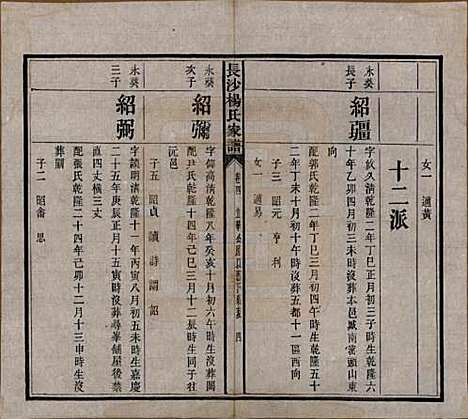 女一 適黃
十二派
永葵長子
紹疆
字啟久清乾隆二年丁巳正月初三子時生乾隆六
十年乙卯四月初六午時沒葬本邑臧南當頭山東
向
配郭氏乾隆二年丁巳三月初四午時生乾隆五十
二年丁未十月初十午時沒葬五都十一區西向
子三 昭元 亨 利
女一 適易
長沙楊氏家譜
卷四
四
永葵次子
紹彌
字 清乾隆八年癸亥十月初六午時沒葬關
配尹氏乾隆十四年己巳三月十二辰時生同子社
沅邑
子五 昭貞 讀 詩 謂 詔
永葵三子
紹弼
字 清乾隆十一年丙寅八月初五未時生嘉慶
二十五年庚辰正月十五寅時沒葬尋峯舖屋後禁
直四丈橫三丈
配張氏乾隆二十四年己卯十二月十三申時生沒
葬闕
子二 昭 思